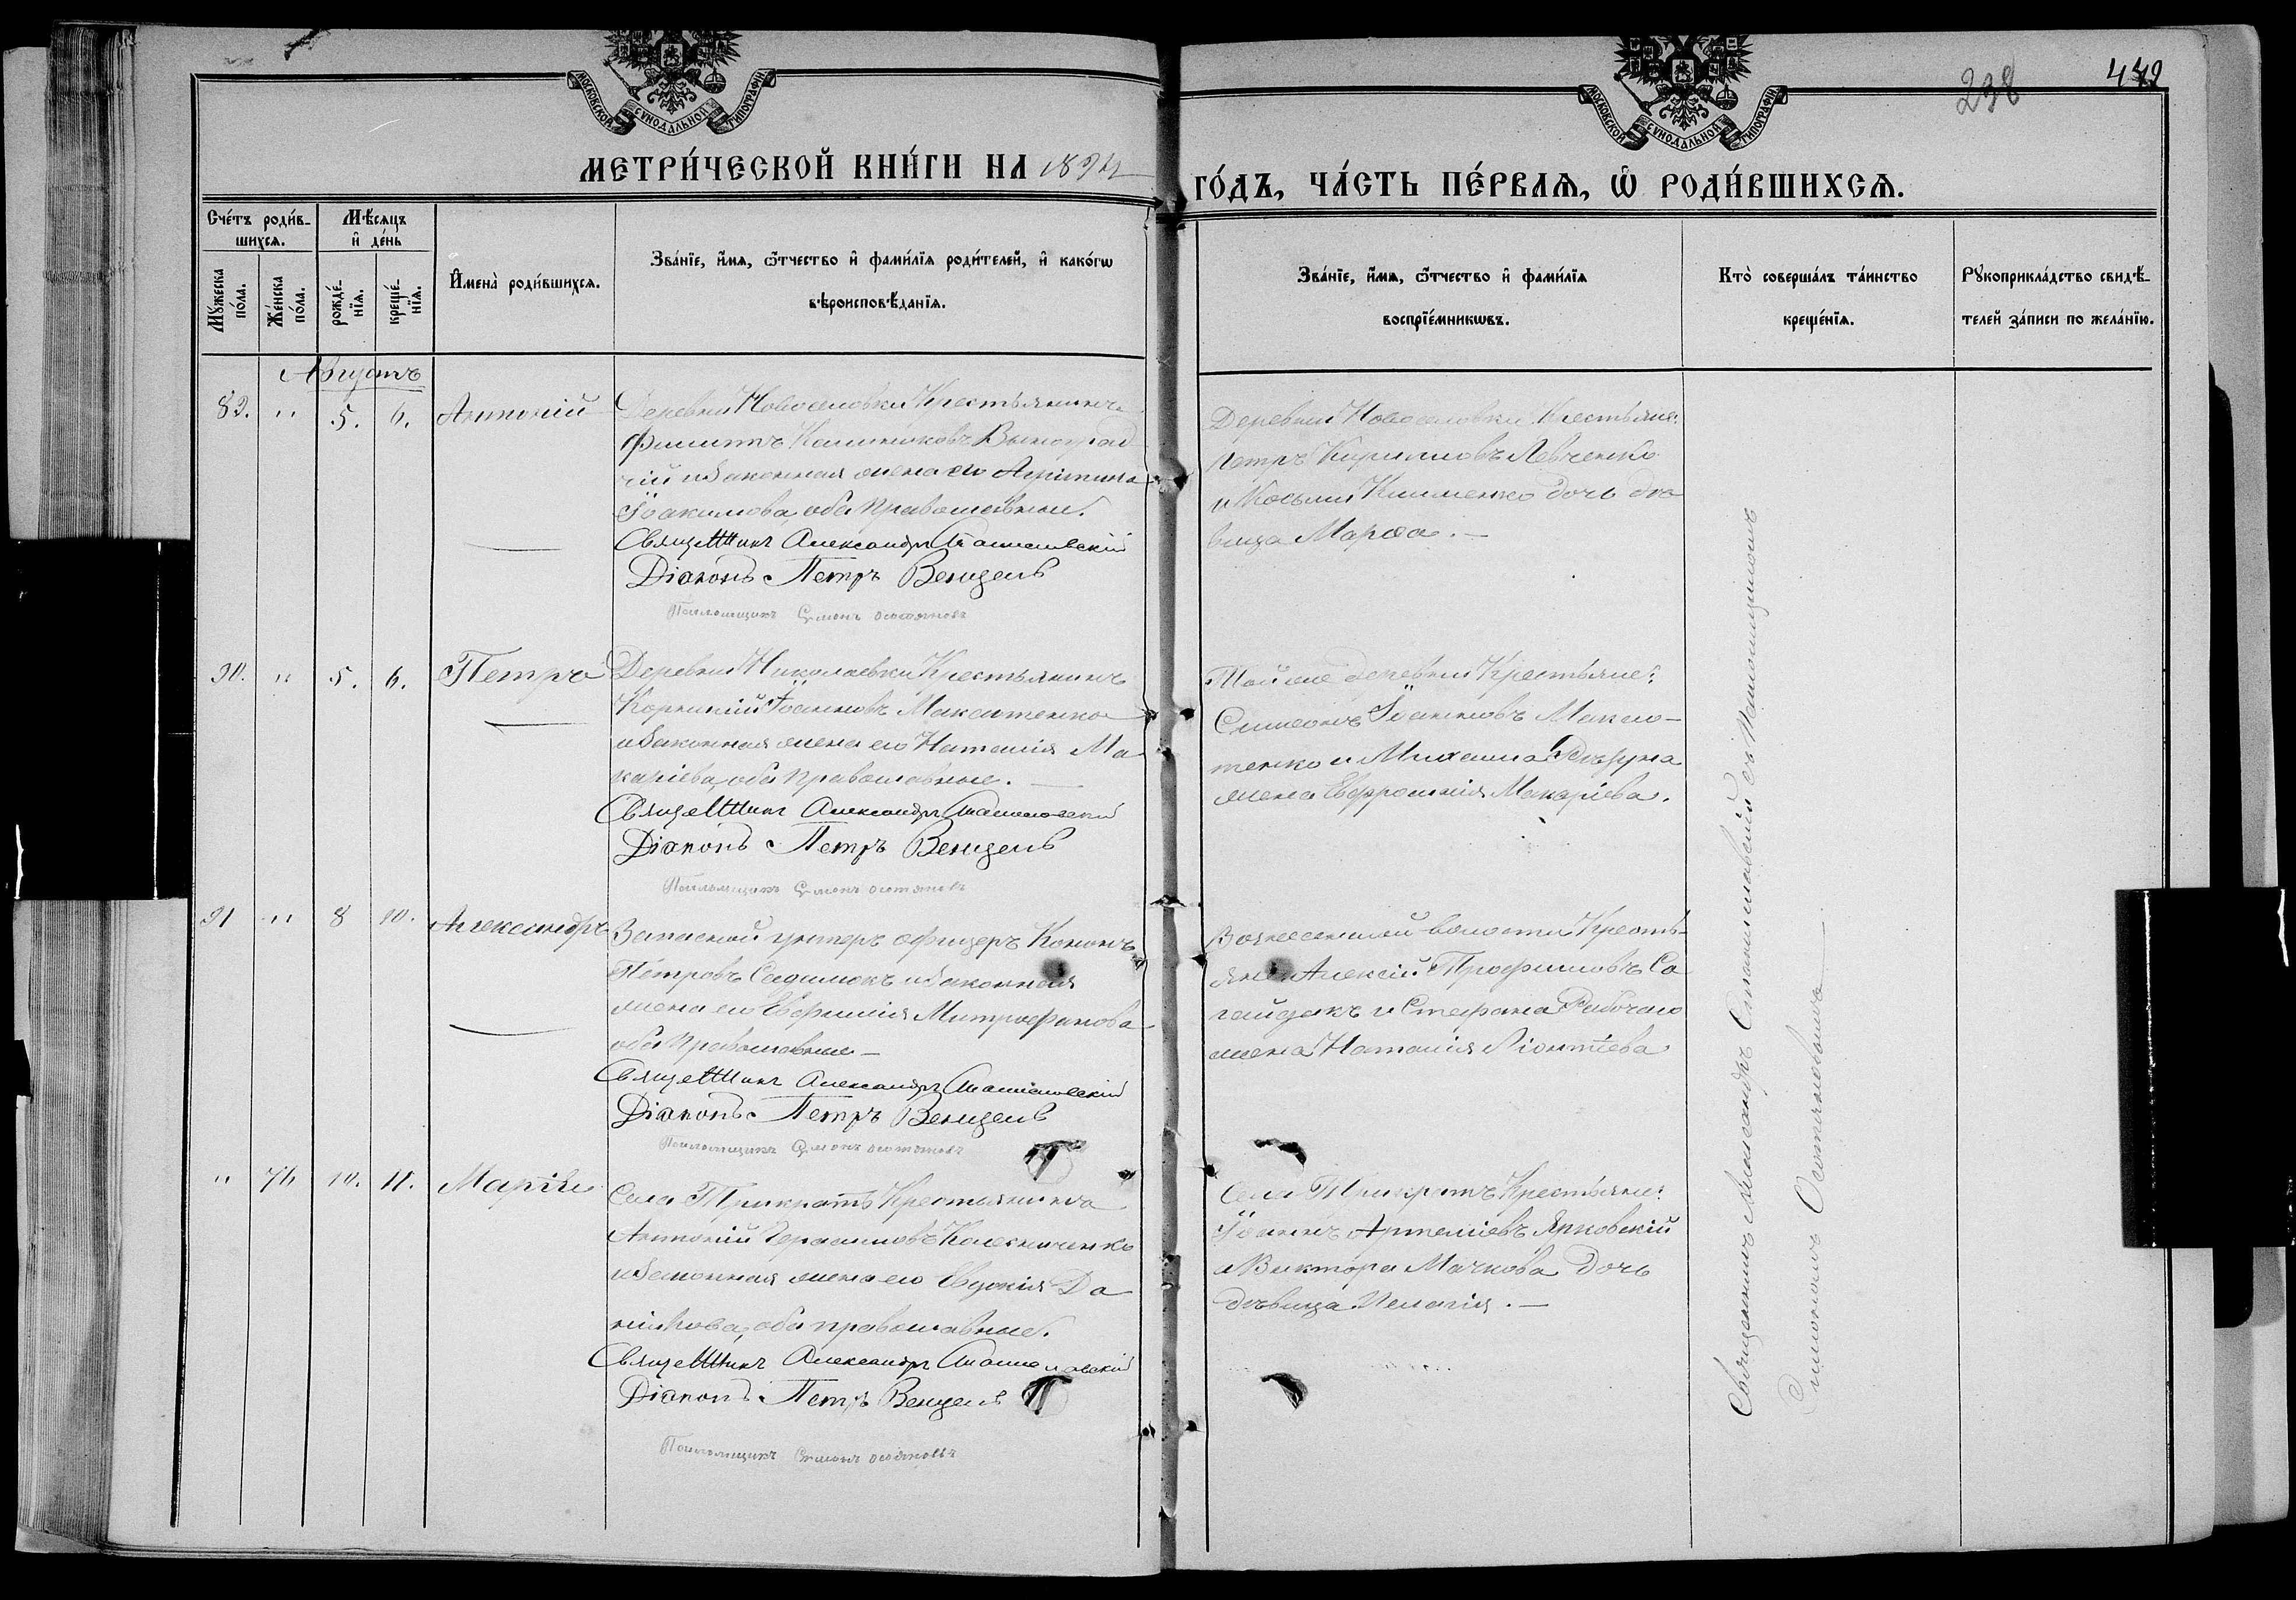 238
442
МОСКОВСКОЙ СУНОДАЛЬНОЙ ТИПОГРАФІИ
МОСКОВСКОЙ СУНОДАЛЬНОЙ ТИПОГРАФІИ
МЕТРИ́ЧЕСКОЙ КНИ́ГИ НА 1894
ГО́ДЪ, ЧА́СТЬ ПЕ́РВАѦ, Ѡ҆ РОДИ́ВШИХСѦ.
Сче́тъ роди́в-
шихсѧ.
Мѣ́сѧцъ
и҆ де́нь
Мꙋ́жеска
по́ла.
Же́нска
по́ла.
рожде́-
нїѧ.
креще́-
нїѧ.
И҆мена̀ роди́вшихсѧ.
Зва́нїе, и҆́мѧ, ѻ҆́тчество и҆ фами́лїѧ роди́телей, и҆ како́гѡ
вѣроисповѣ́данїѧ.
Зва́нїе, и҆́мѧ, ѻ҆́тчество и҆ фами́лїѧ
воспрїе́мникѡвъ.
Кто̀ соверша́лъ та́инство
креще́нїѧ.
Рꙋкоприкла́дство свидѣ́-
телей за́писи по жела́нїю.
Августъ
89. " 5. 6. Антоній
Деревни Новоселовки Крестьянинъ
Филиппъ Калинниковъ Виноград
чій и законная жена его Агрипина
Іоакимова, оба православные.
Священникъ Александръ Станиславскій
Діаконъ Петръ Венцель
Псаломщикъ Симонъ
Деревни Новоселовки Крестьяне:
Петръ Кирилловъ Левченко
и Косьмы Клименко дочь дѣ
вица Марѳа. —
90. " 5. 6. Петръ
Деревни Николаевки Крестьянинъ
Корнилій Іоанновъ
и законная жена его Наталія Ма
каріева, оба православные. —
Священникъ Александръ Станиславскій
Діаконъ Петръ Венцель
Псаломщикъ Симонъ
Той же деревни Крестьяне:
Симеонъ Іоанновъ
тенко и Михаила
жена Евфросинія Макаріева.
91 " 8 10. Александръ
Запасной унтеръ офицеръ Кононъ
Петровъ и законная
жена его Евфимія Митрофанова
оба православные —
Священникъ Александръ Станиславскій
Діаконъ Петръ Венцель
Псаломщикъ Симонъ
Вознесенской волости Кресть-
яне: Алексій Трофимовъ Са
гайдакъ и Стефана
жена Наталія Ліонтіева
" 76 10. 11. Марія
Села Трикратъ Крестьянинъ
Антоній Герасимовъ Колесниченко
и законная жена его Евдокія Да
ніилова, оба православные.
Священникъ Александръ Станиславскій
Діаконъ Петръ Венцель
Псаломщикъ Симонъ
Села Трикратъ Крестьяне:
Іоаннъ Артеміевъ Янковскій
и Виктора Мачкова дочь
дѣвица Пелагія. —
Священникъ Александръ Станиславскій съ Псаломщикомъ
Симономъ